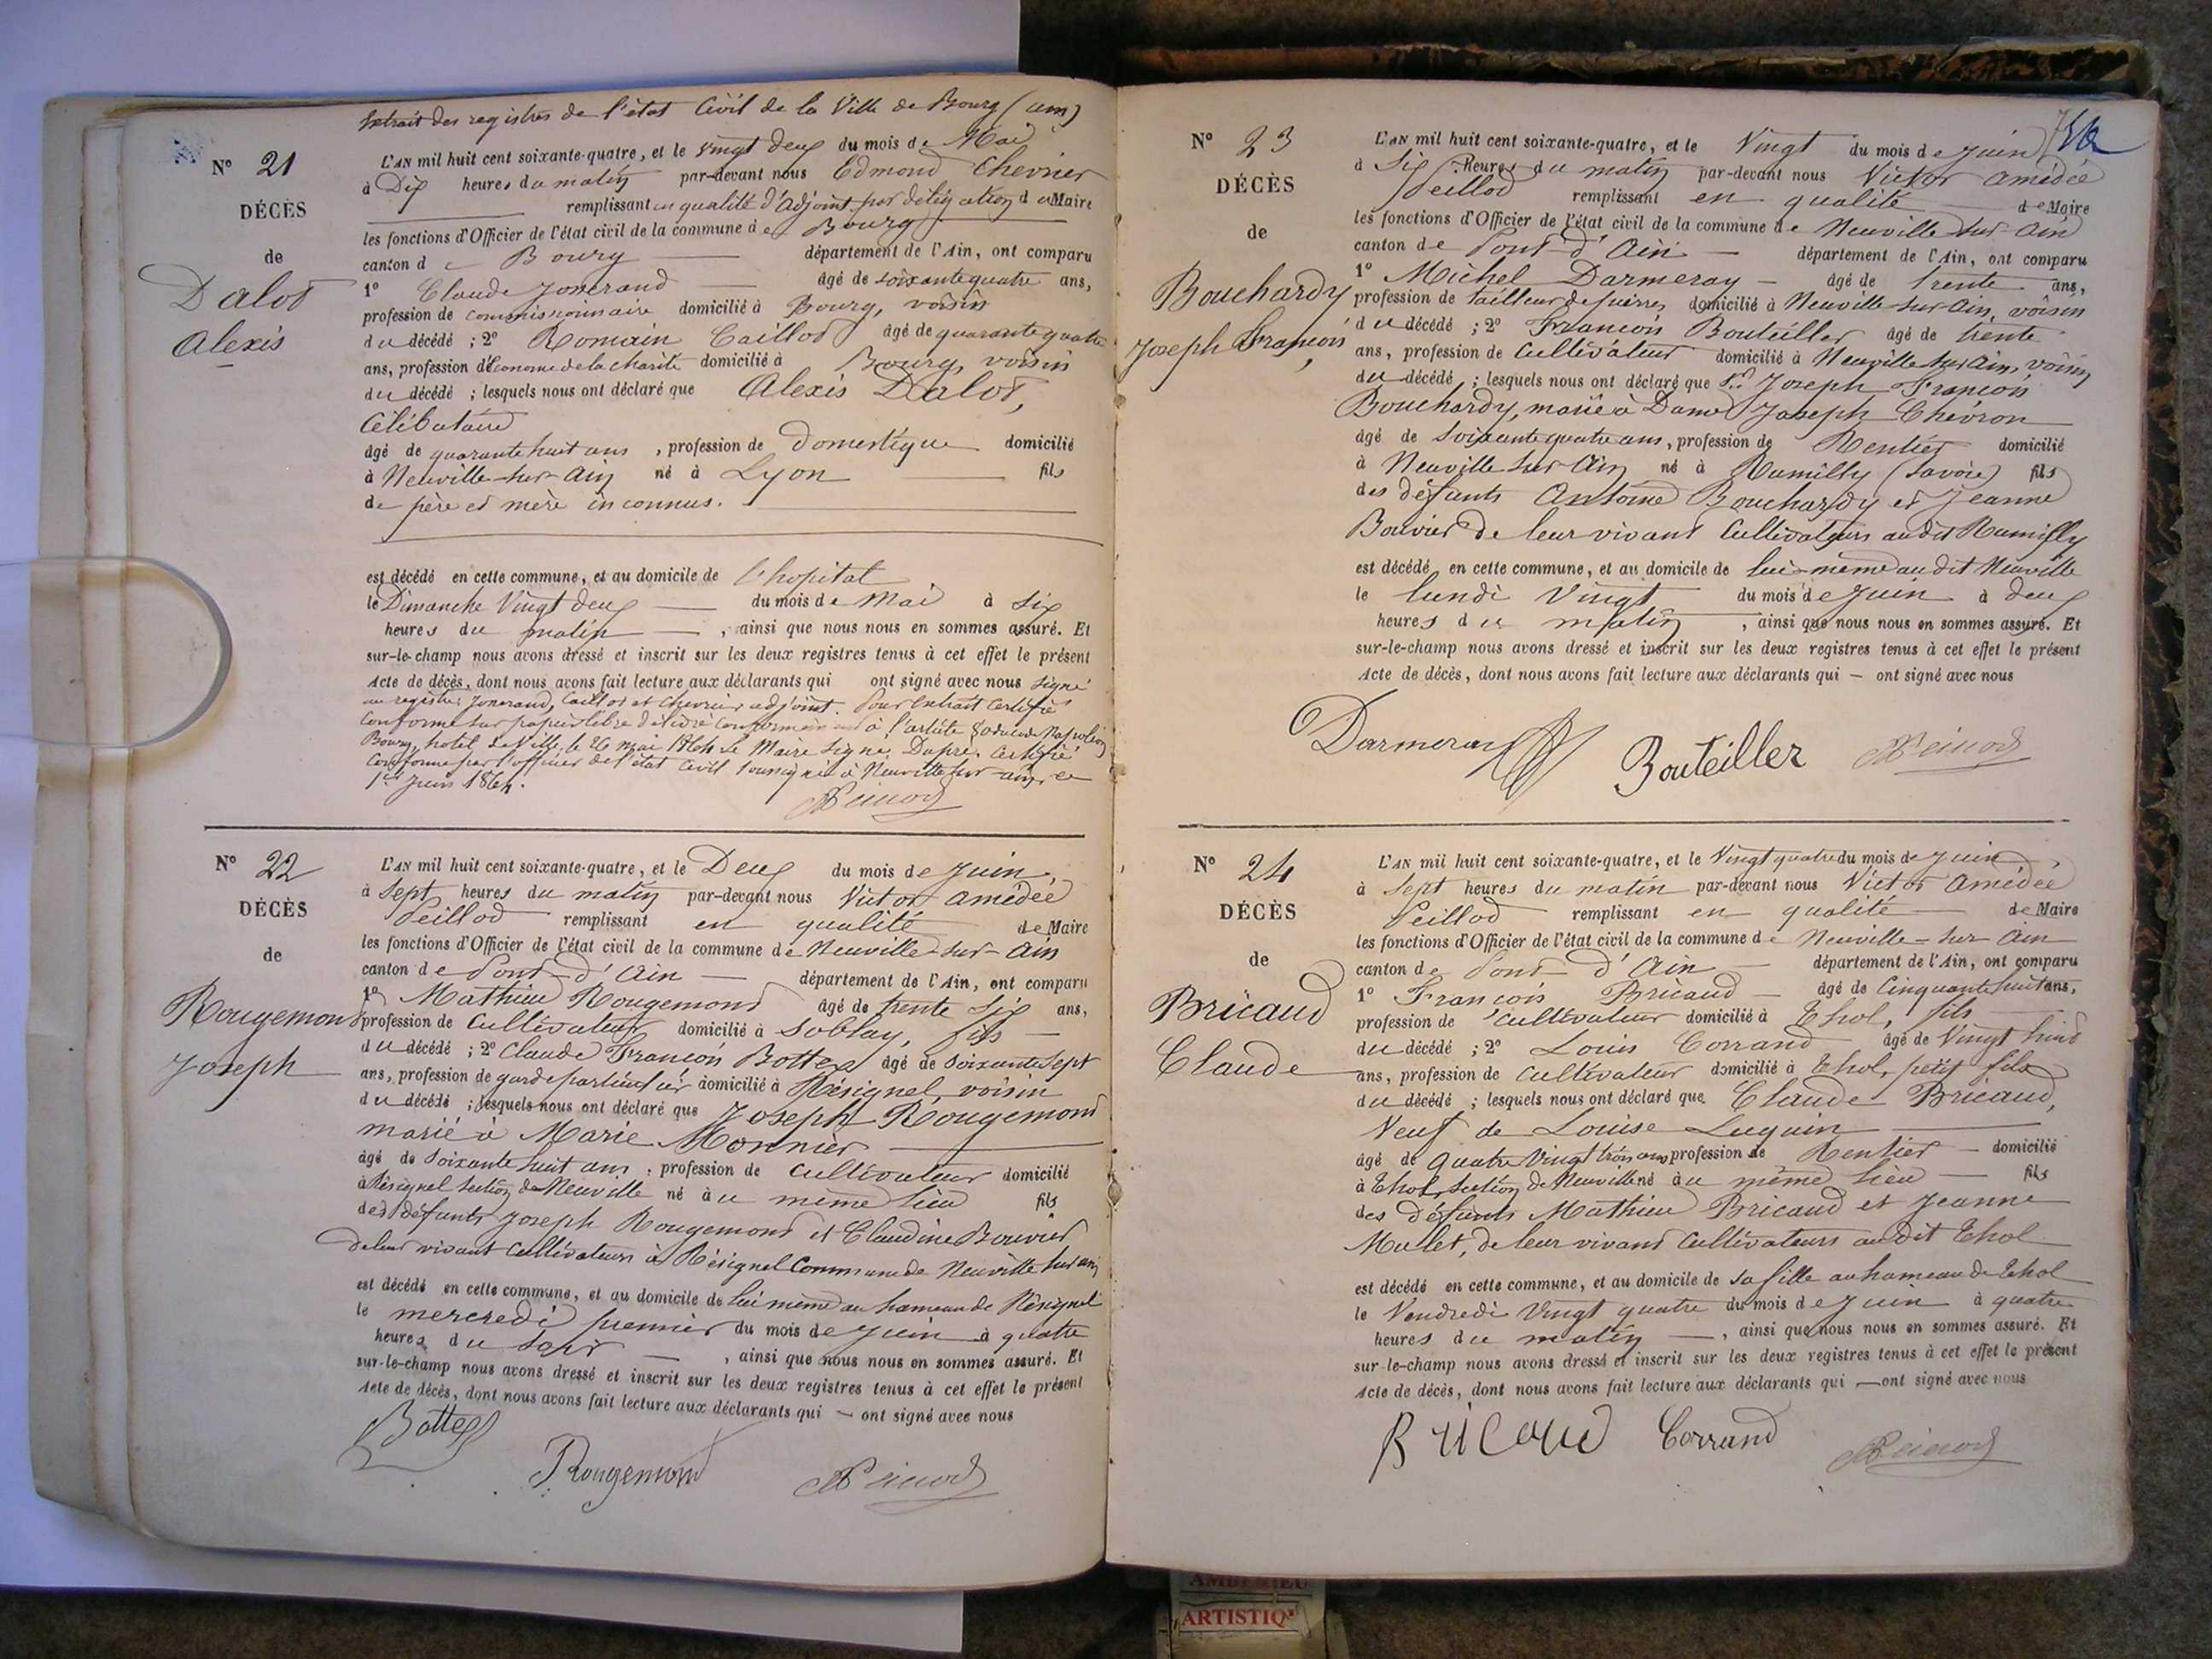 Extrait des registres de l'état Civil de la Ville de Bourg (ain)
N° 21
DÉCÈS
de
Dalot
Alexis
L'AN mil huit cent soixante-quatre, et le Vingt deux du mois de Mai
à Dix heures du matin par-devant nous Edmond Chevrier
remplissant en qualité d'Adjoint par délégation du Maire
les fonctions d'Officier de l'état civil de la commune de Bourg
canton de Bourg département de l'Ain, ont comparu
1° Claude Jonerand âgé de soixante quatre ans,
profession de commissionnaire domicilié à Bourg, voisin
du décédé ; 2° Romain Caillod âgé de quarante quatre
ans, profession d'Econome de la charité domicilié à Bourg, voisin
du décédé ; lesquels nous ont déclaré que Alexis Dalot,
Célibataire
âgé de quarante huit ans, profession de Domestique domicilié
à Neuville-sur-Ain né à Lyon fils
de père et mère inconnus.
est décédé en cette commune, et au domicile de l'hopital
le Dimanche Vingt deux du mois de Mai à Six
heures du matin, ainsi que nous nous en sommes assuré. Et
sur-le-champ nous avons dressé et inscrit sur les deux registres tenus à cet effet le présent
Acte de décès, dont nous avons fait lecture aux déclarants qui ont signé avec nous signé
au registre Jonerand, Caillod et Chevrier adjoint. Pour Extrait Certifié
Conforme sur papier libre délivré conformément à l'article 80 du Code Napoléon
Bourg, hotel de Ville, le 26 mai 1864 le Maire signé Dupré. Certifié
Conforme par l'officier de l'état Civil soussigné à Neuville sur-ain, ce
1er Juin 1864.
N° 22
DÉCÈS
de
Rougemond
Joseph
L'AN mil huit cent soixante-quatre, et le Deux du mois de Juin,
à Sept heures du matin par-devant nous Victor Amédée
Peillod remplissant en qualité de Maire
les fonctions d'Officier de l'état civil de la commune de Neuville-sur-Ain
canton de Pont-d'Ain département de l'Ain, ont comparu
1° Mathieu Rougemond âgé de trente Six ans,
profession de Cultivateur domicilié à Soblay, fils
du décédé ; 2° Claude François Bottex âgé de soixante Sept
ans, profession de garde particulier domicilié à Résignel, voisin
du décédé ; lesquels nous ont déclaré que Joseph Rougemond
marié à Marie Monnier
âgé de Soixante huit ans, profession de Cultivateur domicilié
à Résignel section de Neuville né au même lieu fils
des défunts Joseph Rougemond et Claudine Bouvier
de leur vivant Cultivateurs à Résignel Commune de Neuville sur ain
est décédé en cette commune, et au domicile de lui même au hameau de Résignel
le mercredi premier du mois de Juin à quatre
heures du soir, ainsi que nous nous en sommes assuré. Et
sur-le-champ nous avons dressé et inscrit sur les deux registres tenus à cet effet le présent
Acte de décès, dont nous avons fait lecture aux déclarants qui ont signé avec nous
Bottex
Rougemond
N° 23
DÉCÈS
de
Bouchardy
Joseph François
L'AN mil huit cent soixante-quatre, et le Vingt du mois de Juin
à Six heures du matin par-devant nous Victor Amédée
Peillod remplissant en qualité de Maire
les fonctions d'Officier de l'état civil de la commune de Neuville-sur-Ain
canton de Pont-d'Ain département de l'Ain, ont comparu
1° Michel Darmeray âgé de trente ans,
profession de tailleur de pierres domicilié à Neuville-sur-Ain, voisin
du décédé ; 2° François Bouteiller âgé de trente
ans, profession de Cultivateur domicilié à Neuville sur Ain, voisin
du décédé ; lesquels nous ont déclaré que Sr Joseph François
Bouchardy, marié à Dame Joseph Chévron
âgé de soixante quatre ans, profession de Rentier domicilié
à Neuville sur-Ain né à Rumilly (Savoie) fils
des défunts Antoine Bouchardy et Jeanne
Bouvier de leur vivant Cultivateurs audit Rumilly
est décédé en cette commune, et au domicile de lui-même audit Neuville
le lundi Vingt du mois de Juin à deux
heures du matin, ainsi que nous nous en sommes assuré. Et
sur-le-champ nous avons dressé et inscrit sur les deux registres tenus à cet effet le présent
Acte de décès, dont nous avons fait lecture aux déclarants qui ont signé avec nous
Darmeray
Bouteiller
N° 24
DÉCÈS
de
Bricaud
Claude
L'AN mil huit cent soixante-quatre, et le Vingt quatre du mois de Juin,
à Sept heures du matin par-devant nous Victor Amédée
Peillod remplissant en qualité de Maire
les fonctions d'Officier de l'état civil de la commune de Neuville-sur-Ain
canton de Pont-d'Ain département de l'Ain, ont comparu
1° François Bricaud âgé de Cinquante huit ans,
profession de Cultivateur domicilié à Thol, fils
du décédé ; 2° Louis Corrand âgé de Vingt huit
ans, profession de Cultivateur domicilié à Thol, petit fils
du décédé ; lesquels nous ont déclaré que Claude Bricaud,
Veuf de Louise Luguin
âgé de Quatre Vingt trois ans profession de Rentier domicilié
à Thol, Section de Neuville né au même lieu fils
des défunts Mathieu Bricaud et Jeanne
Mulet, de leur vivant Cultivateurs audit Thol
est décédé en cette commune, et au domicile de sa fille au hameau de Thol
le Vendredi Vingt quatre du mois de Juin à quatre
heures du matin, ainsi que nous nous en sommes assuré. Et
sur-le-champ nous avons dressé et inscrit sur les deux registres tenus à cet effet le présent
Acte de décès, dont nous avons fait lecture aux déclarants qui ont signé avec nous
Bricaud Corrand
ARTISTIQ